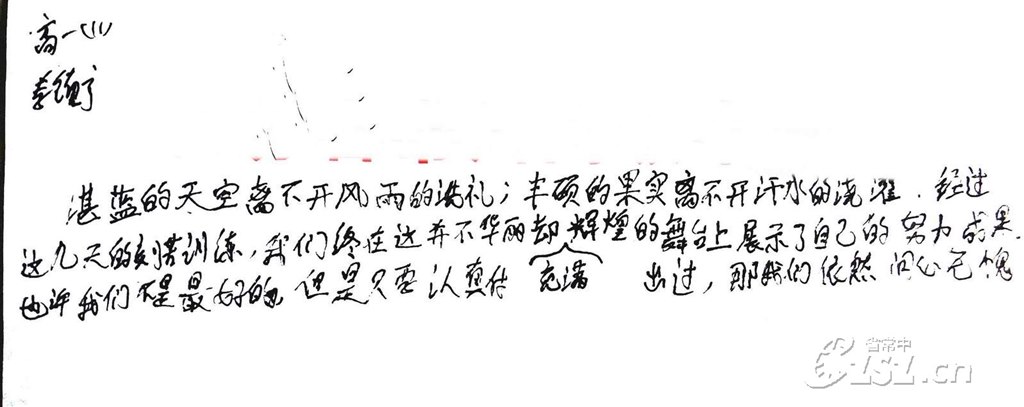 高一(1)
李德宁
湛蓝的天空离不开风雨的洗礼；丰硕的果实离不开汗水的浇灌．经过
这几天的刻苦训练，我们终在这并不华丽却辉煌的舞台上展示了自己的努力成果．
充满
也许我们不是最好的 但是只要认真付出过，那我们依然问心无愧
省常中
CZSZ.cn